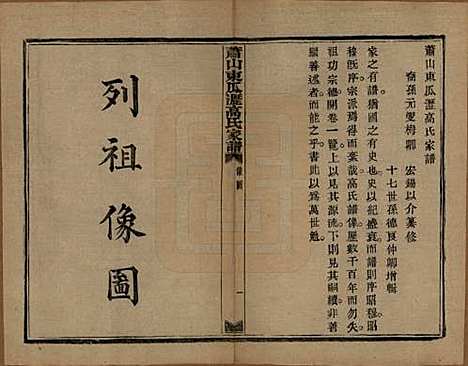 蕭山東瓜瀝高氏家譜
裔孫元燮梅卿 宏錫以介纂修
十七世孫德良仲卿增輯
家之有譜猶國之有史也史以紀盛衰而譜則序昭穆昭
穆既序宗派焉得而紊哉高氏譜像歷數千百年而勿失
祖功宗德開卷一覽上以見其源流下則見其嗣續非善
繼善述者而能之乎書此以為萬世勉
蕭山東瓜瀝高氏家譜
像圖
一
列祖像圖